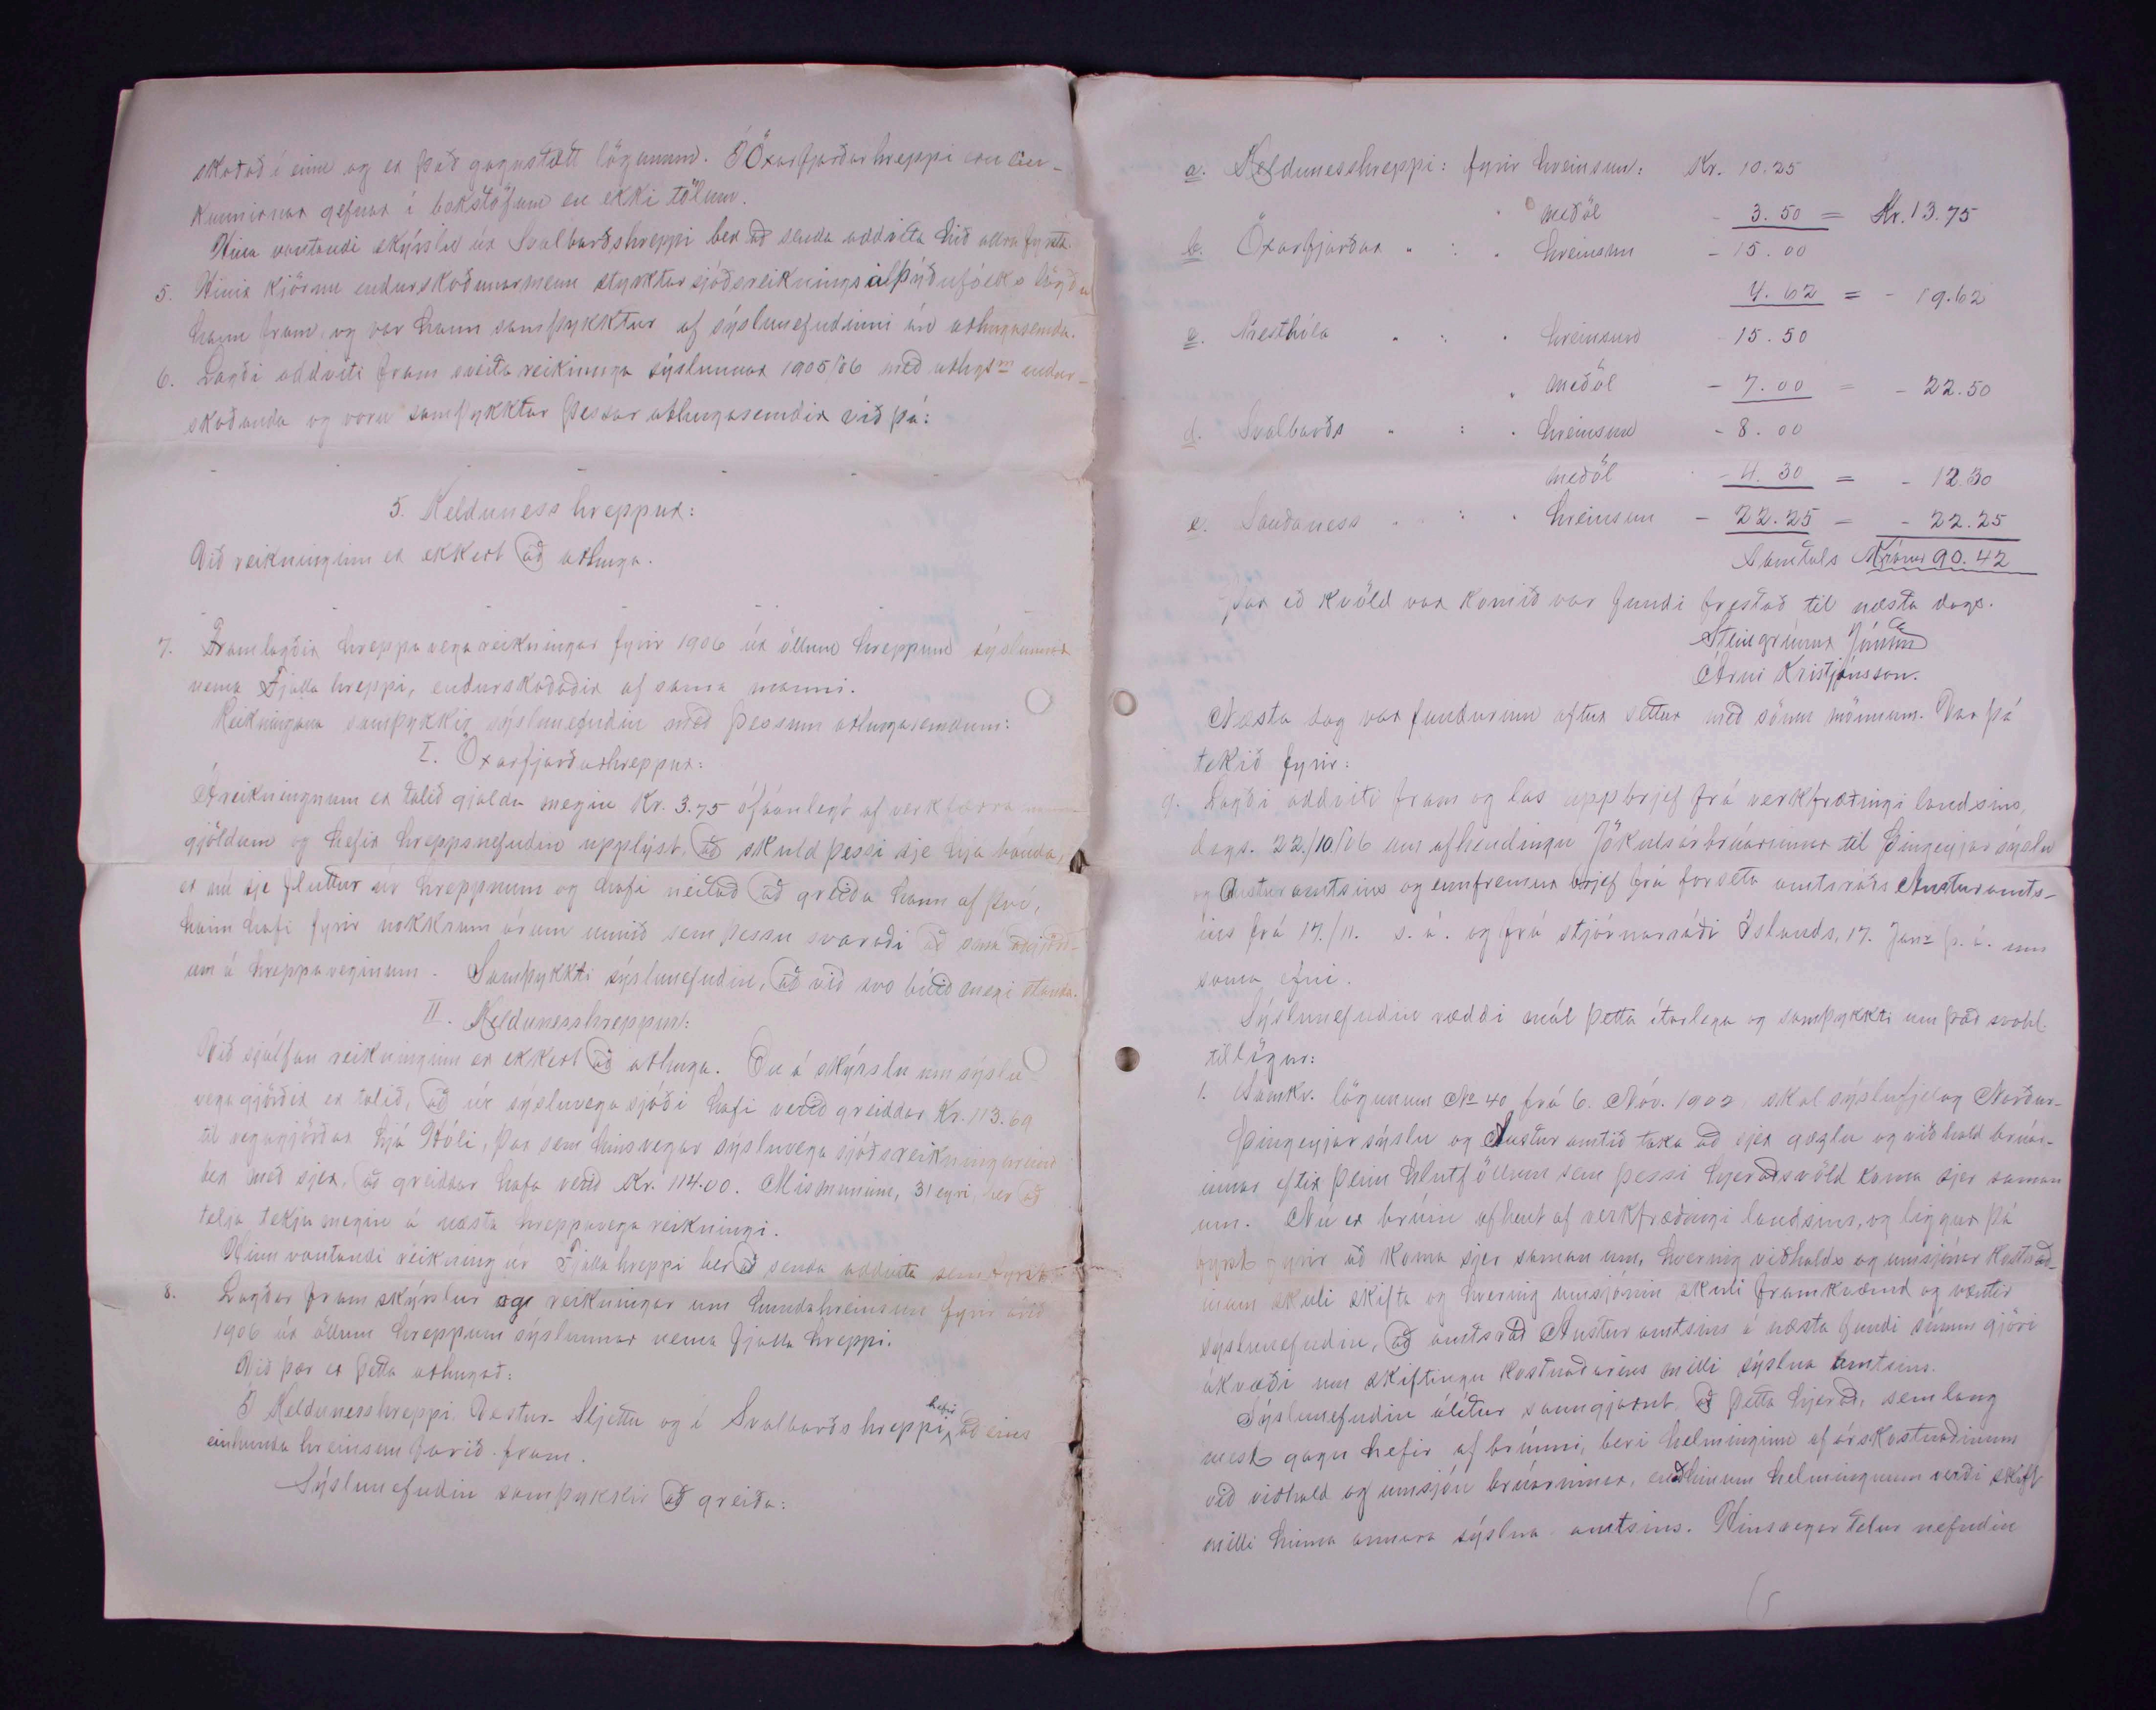 skotað í einu og er það gagnstætt lögunum. Í Öxarfjarðarhreppi eru ein-
kunnirnar gefnar í bókstöfum en ekki tölum.
Hina vantandi skýrslu úr Svalbarðshreppi ber að senda oddvita hið allra fyrsta.
5. Hinir kjörnu endurskoðunarmenn styrktarsjóðsreiknings alþýðufólks lögðu
hann fram, og var hann samþykktur af sýslunefndinni án athugasemda.
6. Lagði oddviti fram sveitareikninga sýslunnar 1905/06 með athgsm endur-
skoðanda og voru samþykktar þessar athugasemdir við þá:
5. Kelduness hreppur:
Við reikninginn er ekkert að athuga.
7. Framlagðir hreppavegareikningar fyrir 1906 úr öllum hreppum sýslunnar
nema Fjallahreppi, endurskoðaðir af sama manni.
Reikningana samþykkir sýslunefndin með þessum athugasemdum:
I. Öxarfjarðarhreppur:
Á reikningnum er talið gjalda megin Kr. 3.75 ófáanlegt af verkfærra
gjöldum og hefir hreppsnefndin upplýst, að skuld þessi sje hjá bónda,
er nú sje fluttur úr hreppnum og hafi neitað að greiða hann af því,
hann hafi fyrir nokkrum árum unnið sem þessu svaraði að
um á hreppaveginum. Samþykkti sýslunefndin, að við svo búið megi standa.
II. Keldunesshreppur:
Við sjálfan reikninginn er ekkert að athuga. En á skýrslu um sýslu-
vegagjörðir er talið, að úr sýsluvegasjóði hafi verið greiddar Kr. 113.69
til vegagjörðar hjá Hóli, þar sem hinsvegar sýsluvegasjóðsreikningurinn
ber með sjer, að greiddar hafa verið Kr. 114.00. Mismuninn, 31 eyri, ber að
telja tekjumegin á næsta hreppavega reikningi.
Hinn vantandi reikning úr Fjallahreppi ber að senda oddvita sem fyrst.
8. Lagðar fram skýrslur og reikningar um hundahreinsun fyrir árið
1906 úr öllum hreppum sýslunnar nema Fjallahreppi.
Við þær er þetta athugað:
Í Keldunesshreppi, Vestur-Sljettu og í Svalbarðshreppi hefir að eins
einhunda hreinsun farið fram.
Sýslunefndin samþykkir að greiða:
a. Keldunesshreppi: fyrir hreinsun: Kr. 10.25
" meðöl - 3.50 = Kr. 13.75
b. Öxarfjarðar " : " hreinsun - 15.00
4.62 = - 19.62
c. Presthóla " : " hreinsun - 15.50
" meðöl - 7.00 = - 22.50
d. Svalbarðs " : " hreinsun - 8.00
meðöl - 4.30 = - 12.30
e. Sauðaness " : " hreinsun - 22.25 = - 22.25
Samtals Krónur 90.42
Þar eð kvöld var komið var fundi frestað til næsta dags.
Steingrímur Jónsson
Árni Kristjánsson.
Næsta dag var fundurinn aftur settur með sömu mönnum. Var þá
tekið fyrir:
9. Lagði oddviti fram og las upp brjef frá verkfræðingi landsins,
dags. 22./10./06 um afhendingu Jökulsárbrúarinnar til Þingeyjarsýslu
og Austuramtsins og ennfremur brjef frá forseta amtsráðs Austuramts-
ins frá 17./11. s. á. og frá stjórnarráði Íslands, 17. Janr þ. á. um
sama efni.
Sýslunefndin ræddi mál þetta ítarlega og samþykkti um það svohl.
tillögur:
1. Samkv. lögunum No 40 frá 6. Nóv. 1902, skal sýslufjelag Norður-
Þingeyjarsýslu og Austuramtið taka að sjer gæzlu og viðhald brúar-
innar eftir þeim hlutföllum sem þessi hjeraðsvöld koma sjer saman
um. Nú er brúin afhent af verkfræðingi landsins, og liggur þá
fyrst fyrir að koma sjer saman um, hvernig viðhalds og umsjónar kostnað-
inum skuli skifta og hvernig umsjónin skuli framkvæmd og væntir
sýslunefndin, að amtsráð Austuramtsins á næsta fundi sínum gjöri
ákvæði um skiftingu kostnaðarins milli sýslna amtsins.
Sýslunefndin álítur sanngjarnt, að þetta hjerað, sem lang
mest gagn hefir af brúnni, beri helminginn af árskostnaðinum
við viðhald og umsjón brúarinnar, en hinum helmingnum verði skift
milli hinna annara sýslna amtsins. Hinsvegar telur nefndin